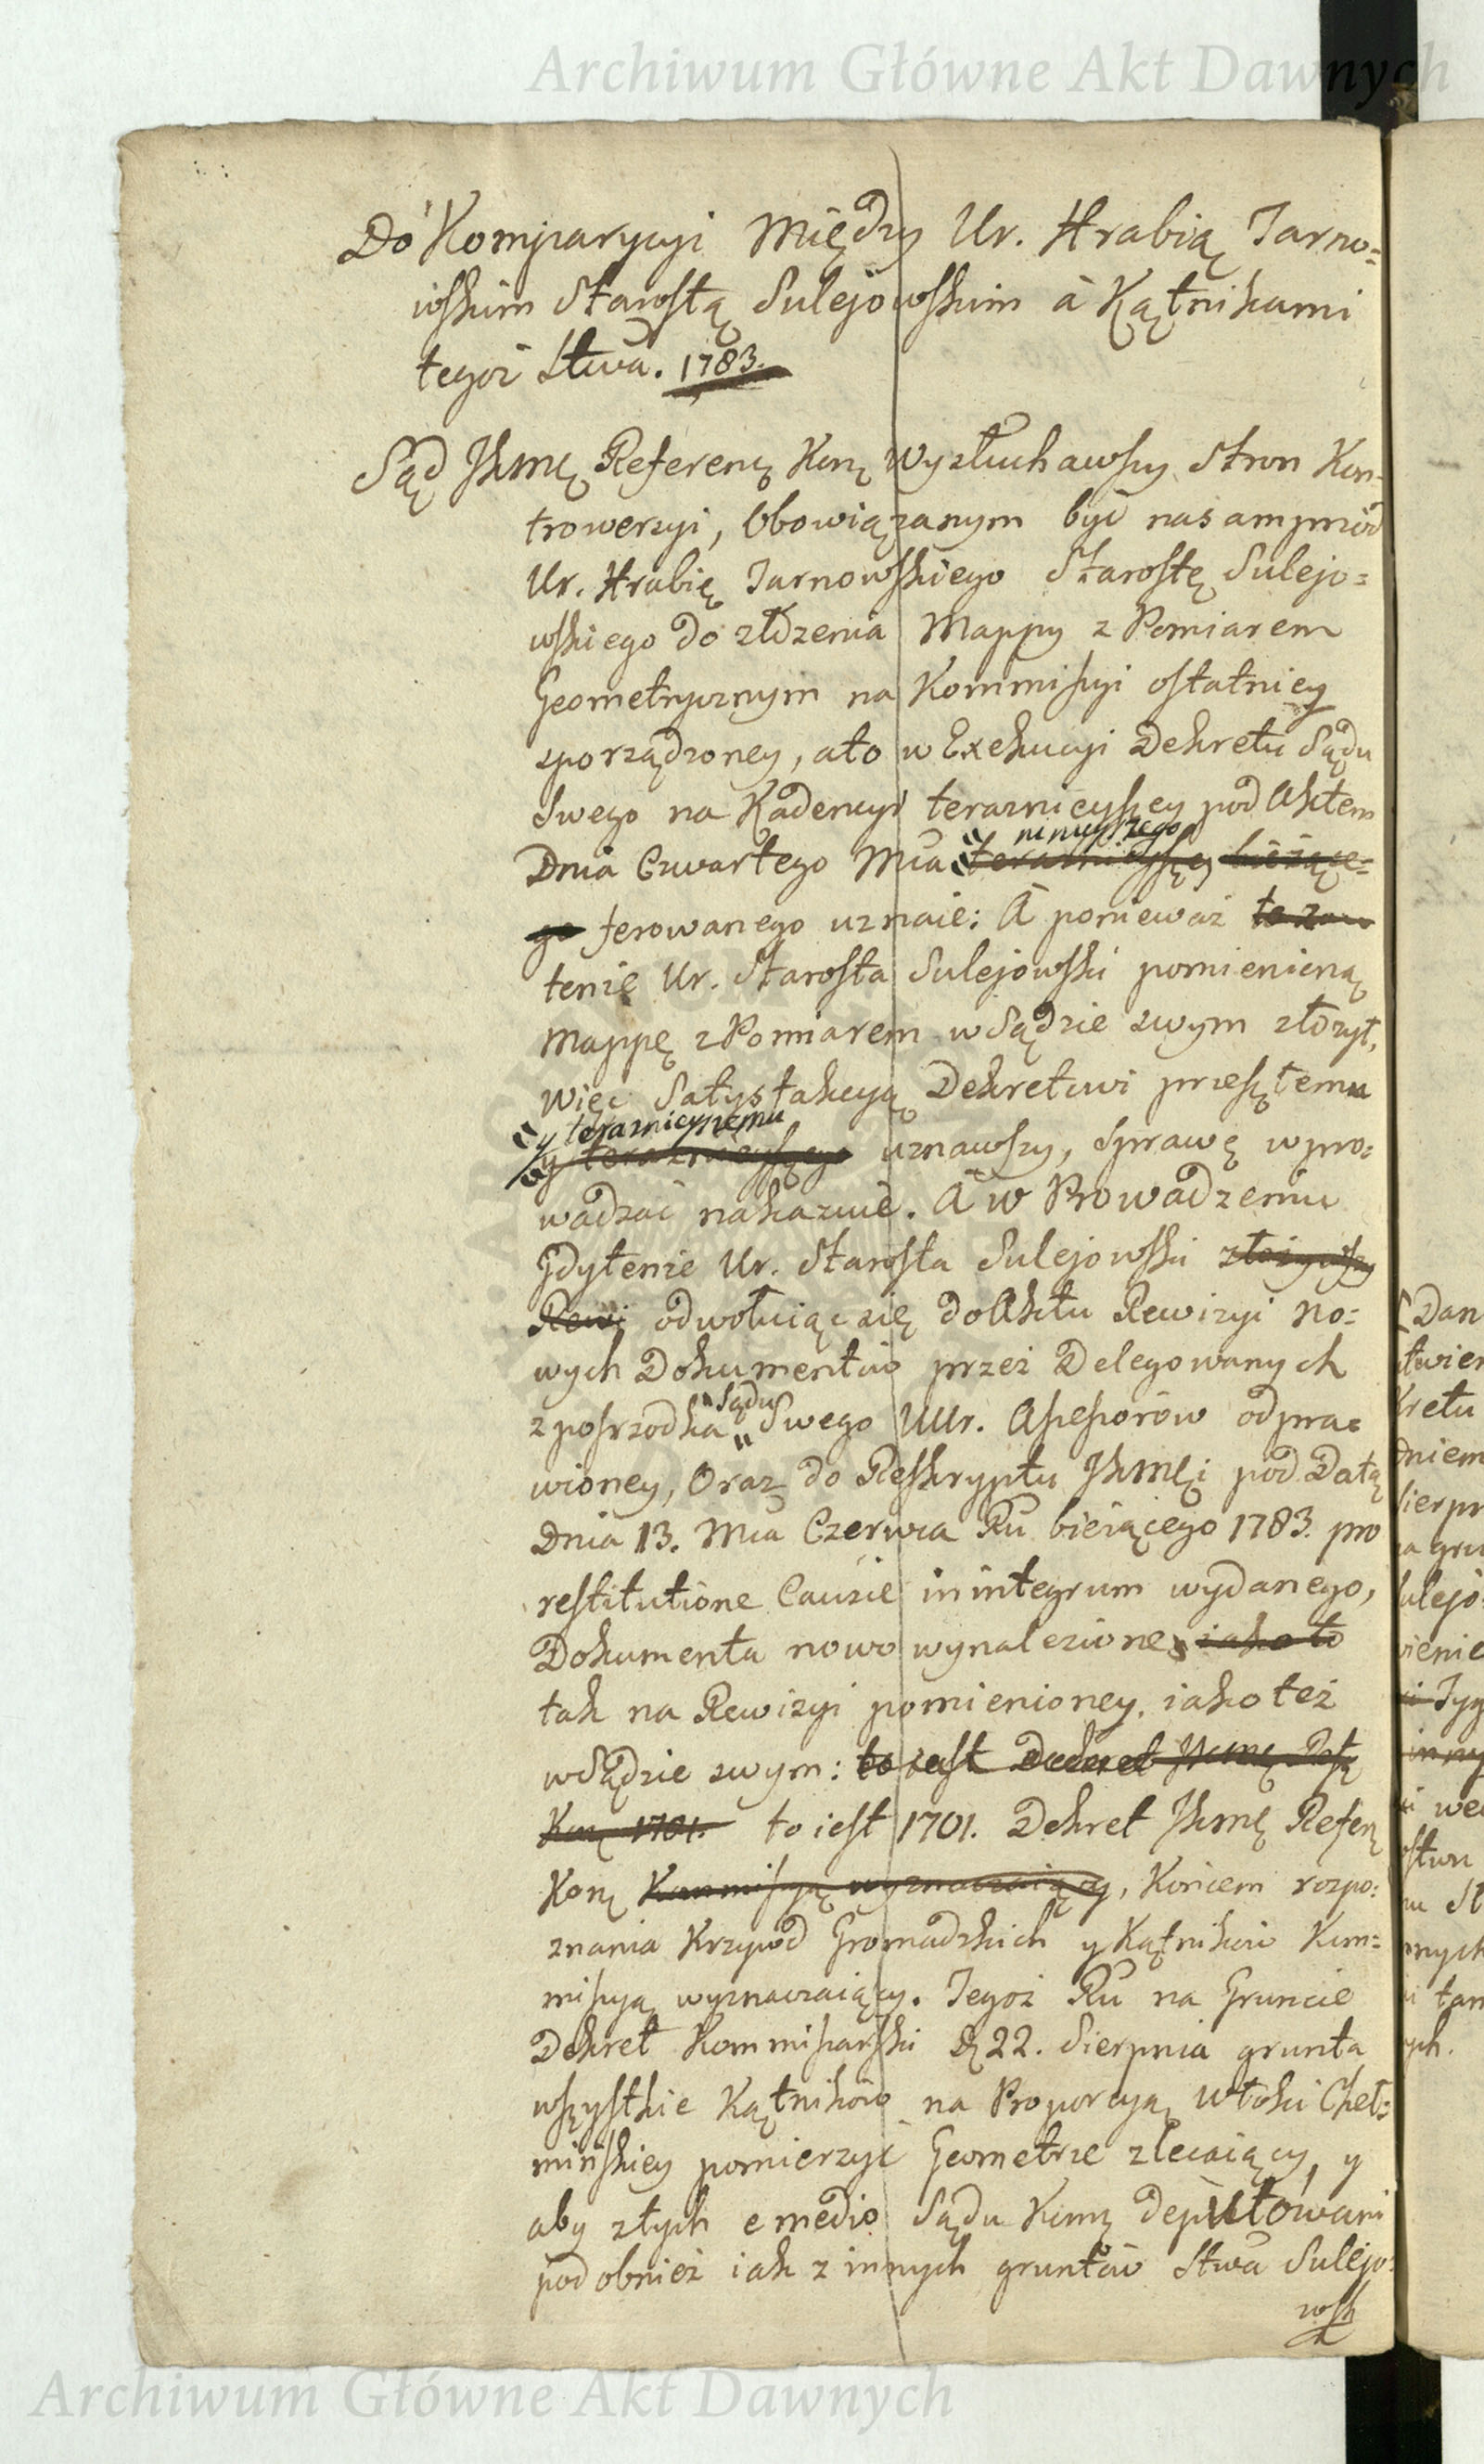 Archiwum Główne Akt Dawnych
Do Komparycyi Między Ur. Hrabią Tarno=
wskim Starostą Sulejowskim á Kątnikami
tegoż Stwa. 1783.
Sąd JKmę Referenę Konę Wysłuchawszy Stron Kon-
trowersyi, Obowiązanym być nasamprzód
Ur. Hrabię Tarnowskiego Starostę Sulejo=
wskiego do złożenia Mappy z Pomiarem
Geometrycznym na Kommissyi ostatniey
sporządzoney, ato w Exekucyi Dekretu Sądu
Swego na Kadencyi teraznieyszey pod Aktem
ninieyszego
Dnia Czwartego Mca terazneyszey bieżące=
go ferowanego uznaie: A ponieważ
tenże Ur. Starosta Sulejowski pomienioną
Mappę z Pomiarem w Sądzie swym złożył,
Więc Satysfakcyą Dekretowi przeszłemu
y teraznieyszemu
y teraznieyszego uznawszy, Sprawę wpro=
wadzać nakazuie. A w Prowadzeniu
Gdytenże Ur. Starosta Sulejowski złożywszy
Rewi odwołuiąc się do Aktu Rewizyi no=
wych Dokumentów przez Delegowanych
Sądu
z posrzodka Swego UUr. Assessorów odpra=
wioney, Oraz do Reskryptu JKmęi pod Datą
Dnia 13. Mca Czerwca Ru bieżącego 1783. pro
restitutione Causæ in integrum wydanego,
Dokumenta nowo wynalezione, iako to
tak na Rewizyi pomienioney, iako też
w Sądzie swym: to iest Dekret JKmę Refę
Konę 1701. to iest 1701. Dekret JKmę Referę
Konę Kommissyą wyznaczaiący, Końcem rozpo=
znania Krzywd Gromadzkich y Kątników Kom=
missyą wyznaczaiący. Tegoż Ru na Gruncie
Dekret Kommissarski 22. Sierpnia grunta
wszystkie Kątników na Proporcyą Włoki Cheł=
mińskiey pomierzyć Geometrze zlecaiący, y
aby z tych e medio Sądu Konę deputowani
podobnież iak z innych gruntów Stwa Sulejo=
wsk
Archiwum Główne Akt Dawnych